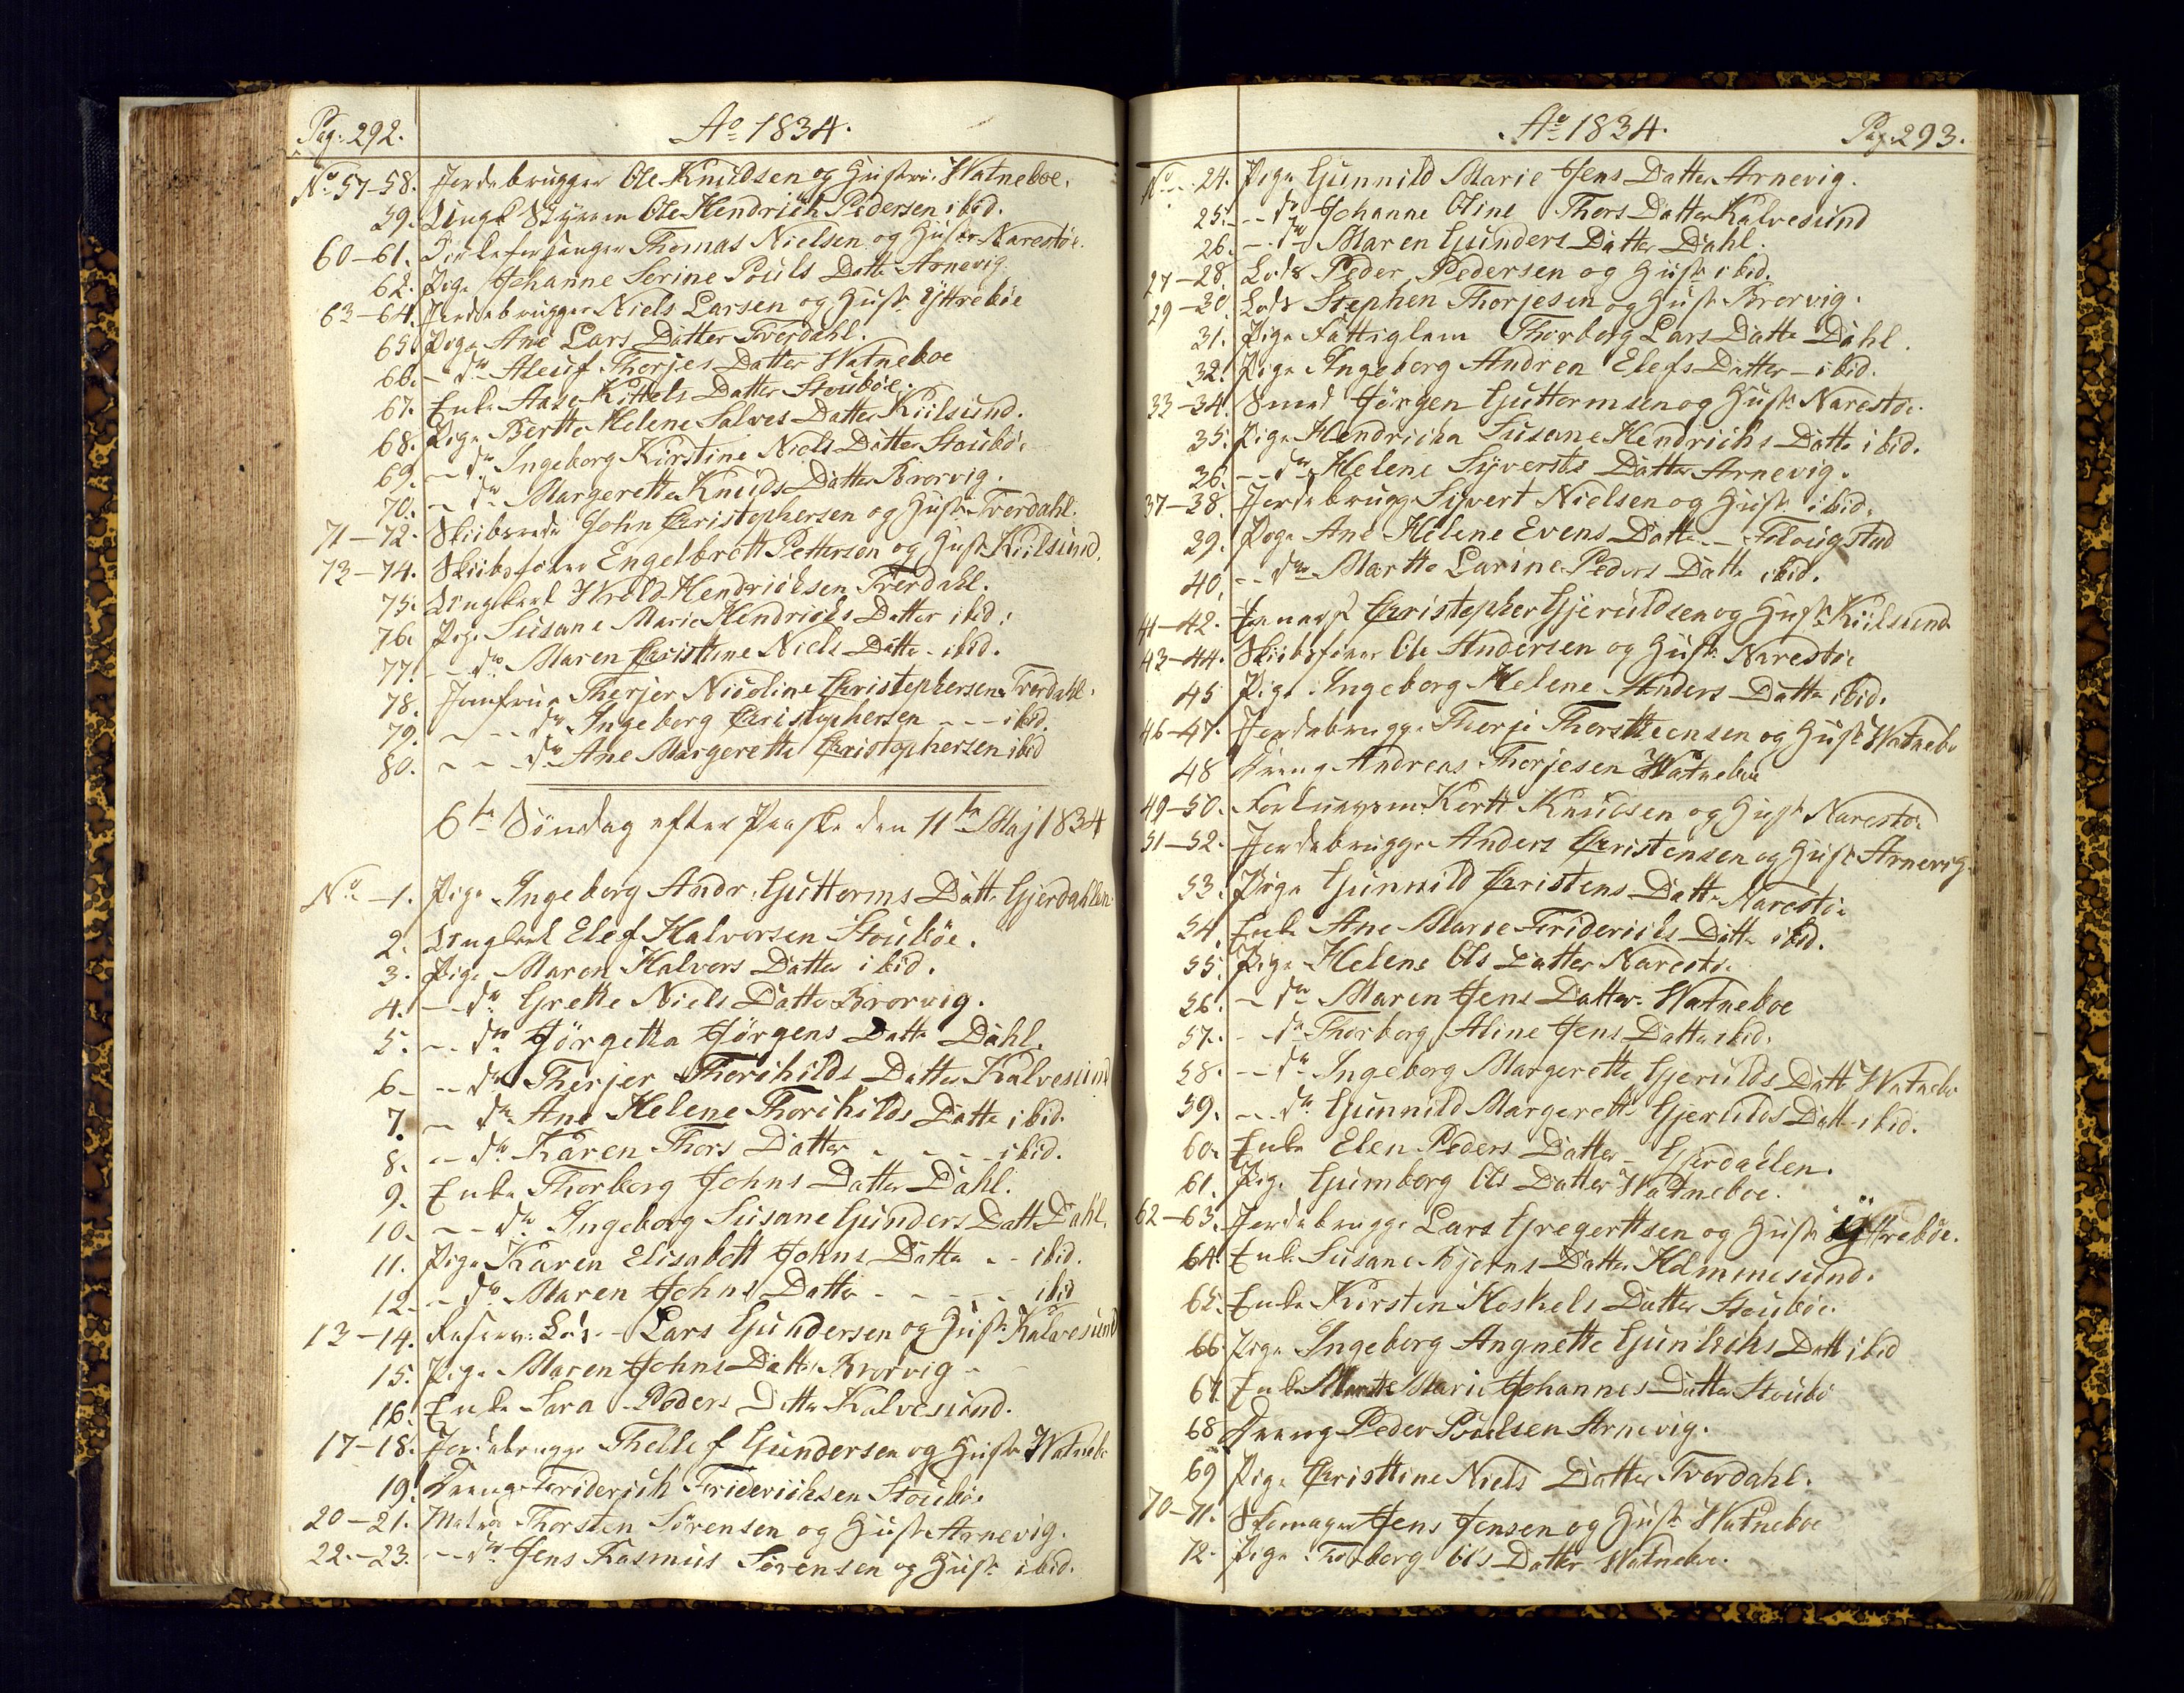 Pag: 292.
Ao 1834.
No 57-58. Jordebrugger Ole Knudsen og Hustrue Watneboe.
59. Ole Hendrich Pedersen ibid.
60-61. Thomas Nielsen og Hustr Narestöe.
62. Pige Johanne Serine Pouls Datter Arnevig.
63-64. Jordebrugger Niels Larsen og Hustr Yttreböe
65. Pige Ane Lars Datter Tverdahl.
66. - do Aleuf Thorjes Datter Watneboe
67. Enke Aase Kittels Datter Stouböe.
68. Pige Berthe Helene Salves Datter Kiilsund.
69. - do Ingeborg Kirstine Niels Datter Stouböe
70. - do Margerethe Knuds Datter Brorvig.
71-72. Skibsreder John Christophersen og Hustr Tverdahl.
73-74. Skibsförer Engelbrett Pettersen og Hustr Kiilsund.
75. Ungkarl Hendrichsen Tverdahl.
76. Pige Susane Marie Hendrichs Datter ibid.
77. - do Maren Christine Niels Datter - ibid.
78. Jomfrue Therjer Nicoline Christophersen Tverdahl.
79. - - do Ingeborg Christophersen - - - ibid.
80. - - do Ane Margerethe Christophersen ibid
6te Söndag efter Paaske den 11te Maj 1834
No -1. Pige Ingeborg Andr. Guttorms Datt. Gjerdahlen
2. Ungkarl Elef Halvorsen Stouböe.
3. Pige Maren Halvors Datter ibid.
4. - do Grethe Niels Datter Brorvig.
5. - do Jörgetha Jörgens Datter Dahl.
6. - do Therjer Thorchilds Datter Kalvesund
7. - do Ane Helene Thorchilds Datte ibid.
8. - do Karen Thors Datter - - - ibid.
9. Enke Thorborg Johns Datter Dahl.
10. - do Ingeborg Susane Gunders Datt. Dahl.
11. Pige Karen Elisabett Johns Datter - - ibid.
12. - do Maren Johns Datter - - - - ibid
13-14. Reserve: Lods - Lars Gundersen og Hustr. Kalvesund
15. Pige Maren Johns Datter Brorvig -
16. Enke Sara Peders Datter Kalvesund.
17-18. Jordebrugger Thellef Gundersen og Hustr Watnebo
19. Dreng Friderich Friderichsen Stouböe
20-21. Matros Thorsten Sörensen og Hustr Arnevig.
22-23. - do Jens Rasmus Sörensen og Hustr ibid.
Ao 1834.
Pag: 293.
No 24. Pige Gunnild Marie Jens Datter Arnevig.
25. - - do Johanne Oline Thors Datter Kalvesund
26. - do Maren Gunders Datter Dahl.
27-28. Lods Peder Pedersen og Hustr ibid.
29-30. Lods Stephen Thorjesen og Hustr Brorvig.
31. Pige Fattiglem Thorborg Lars Datte Dahl.
32. Pige Ingeborg Andrea Elefs Datter - ibid.
33-34. Smed Jörgen Guttormsen og Hustr. Narestöe.
35. Pige Hendricha Susane Hendrichs Datte ibid.
36. - - do Helene Syverts Datter Arnevig.
37-38. Jordebrugg Syvert Nielsen og Hustr ibid.
39. Pige Ane Helene Evens Datte -
40. - - do Marthe Larine Peders Datte ibid.
41-42. Christopher Gjeruldsen og Hustr Kiilsund
43-44. Skibsförer Ole Andersen og Hustr. Narestöe
45 Pige Ingeborg Helene Anders Datte ibid.
46-47. Jordebrugge Thorje Thorsteensen og Hustr Watnebo
48 Dreng Andreas Thorjesen Watneboe
49-50. Kortt Knudsen og Hustr Narestöe
51-52. Jordebrugger Anders Christensen og Hustr. Arnevig.
53. Pige Gunnild Christens Datt Narestöe
54. Enke Ane Marie Friderichs Datte ibid.
55. Pige Helene Ols Datter Narestöe
56. - do Maren Jens Datter Watneboe
57. - do Thorborg Aline Jens Datter ibid.
58. - - do Ingeborg Margerethe Gjerulds Datt Watnebo
59. - - do Gunnild Margerethe Gjerulds Datt - ibid.
60. Enke Elen Peders Datter - Gjerdahlen.
61. Pige Gumborg Ols Datter Watneboe.
62-63. Jordebrugge Lars Gregerttsen og Hustr Yttreböe.
64. Enke Susane Björns Datter Holmmesund.
65. Enke Kirsten Koskels Datter Stouböe
66. Pige Ingeborg Angnette Gunleichs Datt ibid
67. Enke Marthe Marie Johannes Datter Stouböe
68 Dreng Peder Poulsen Arnevig.
69 Pige Christtine Niels Datter Tverdahl.
70-71. Skomager Jens Jensen og Hustr Watneboe
72. Pige Torborg Ols Datter Watneboe.